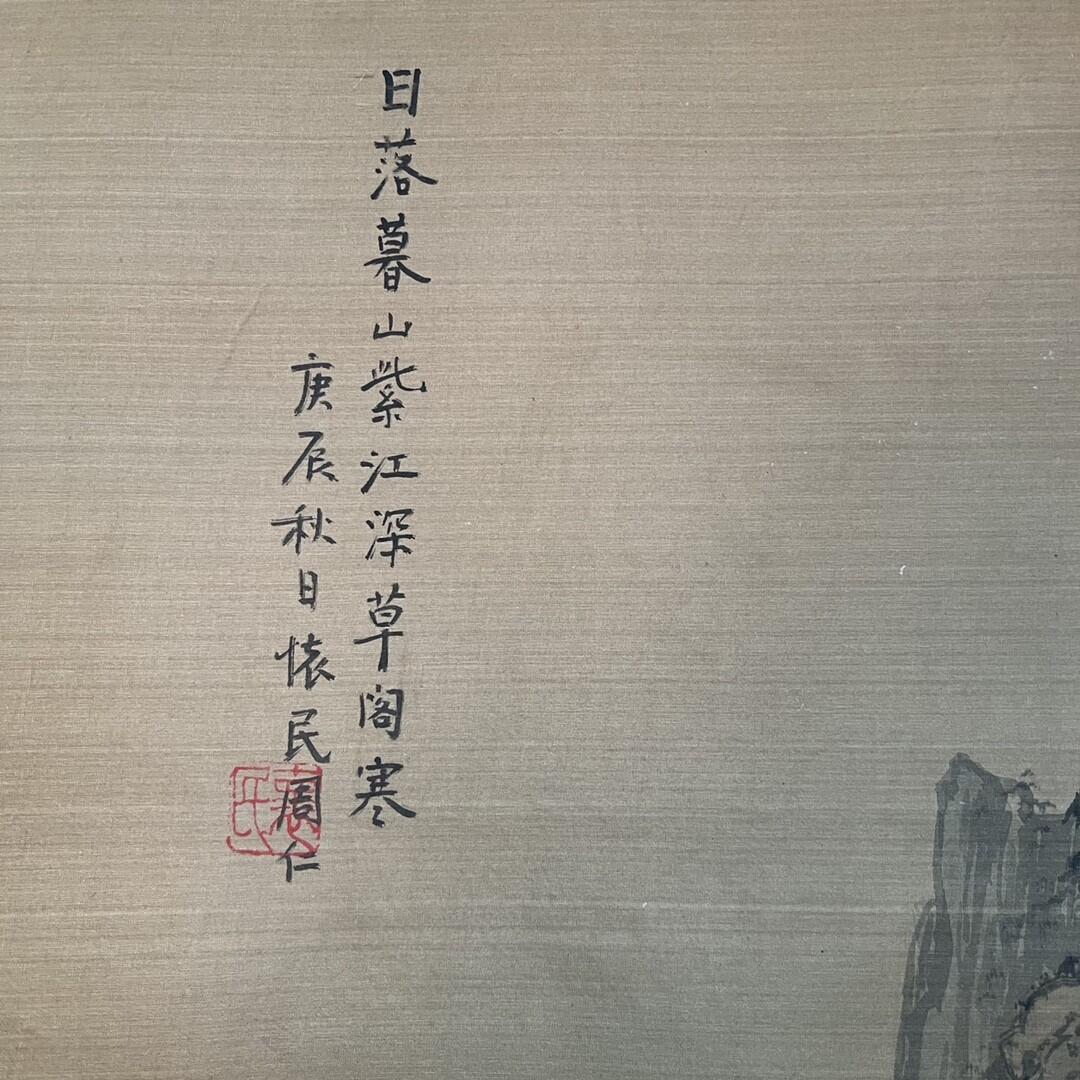 日落暮山紫江深草阁寒
庚辰秋日懐民周仁